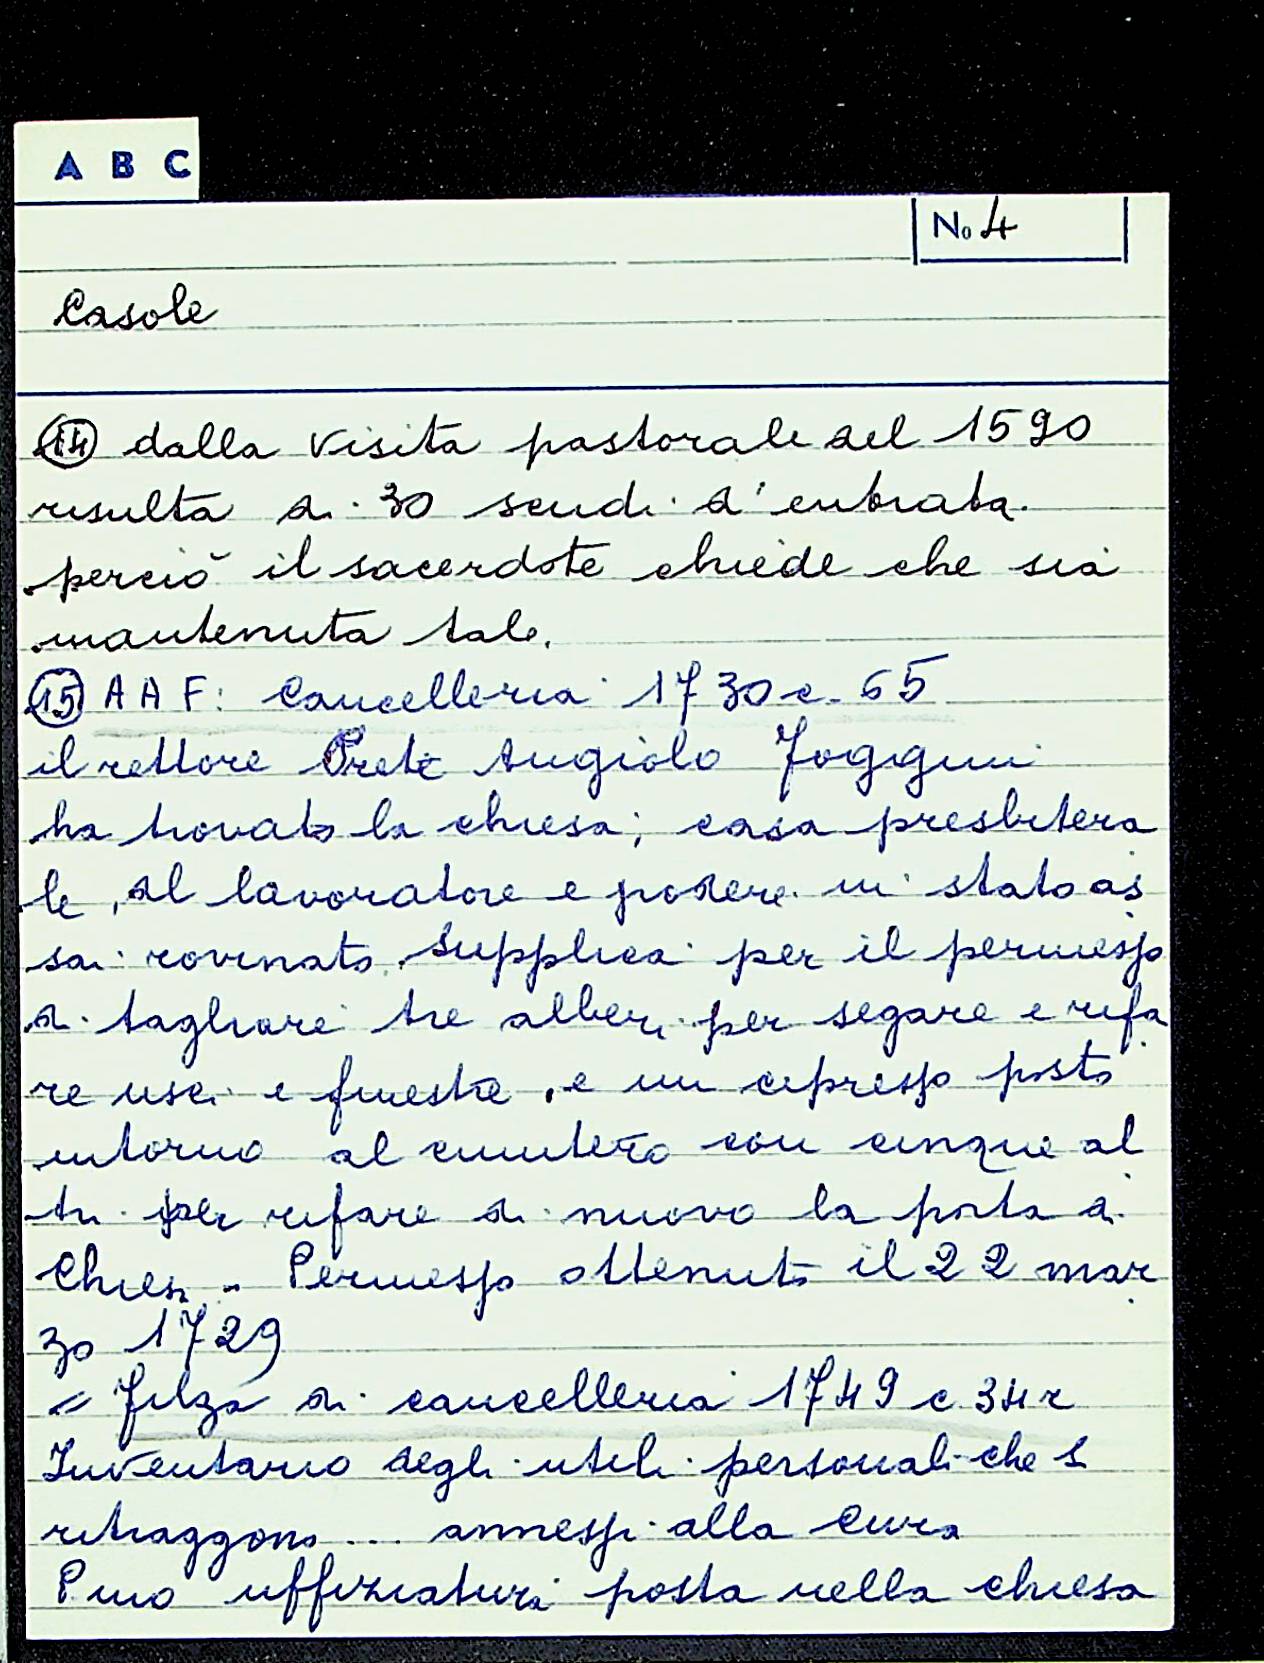 A B C
No 4
Casole
14 dalla visita pastorale del 1590
risulta di 30 scudi d'entrata.
perciò il sacerdote chiede che sia
mantenuta tale.
15 A A F: Cancelleria 1730 c. 65
il rettore Prete Angiolo Foggini
ha trovato la chiesa; casa presbitera
le, del lavoratore e podere in stato as
sai rovinato. Supplica per il permesso
di tagliare tre alberi per segare e rifa
re usci e finestre, e un cipresso posto
intorno al cimitero con cinque al
tri per rifare di nuovo la porta di
Chiesa. Permesso ottenuto il 22 mar
zo 1729
= Filza di cancelleria 1749 c 34 r
Inventario degli utili personali che si
ritraggono ... annessi alla Cura
Pmo uffiziatura posta nella chiesa